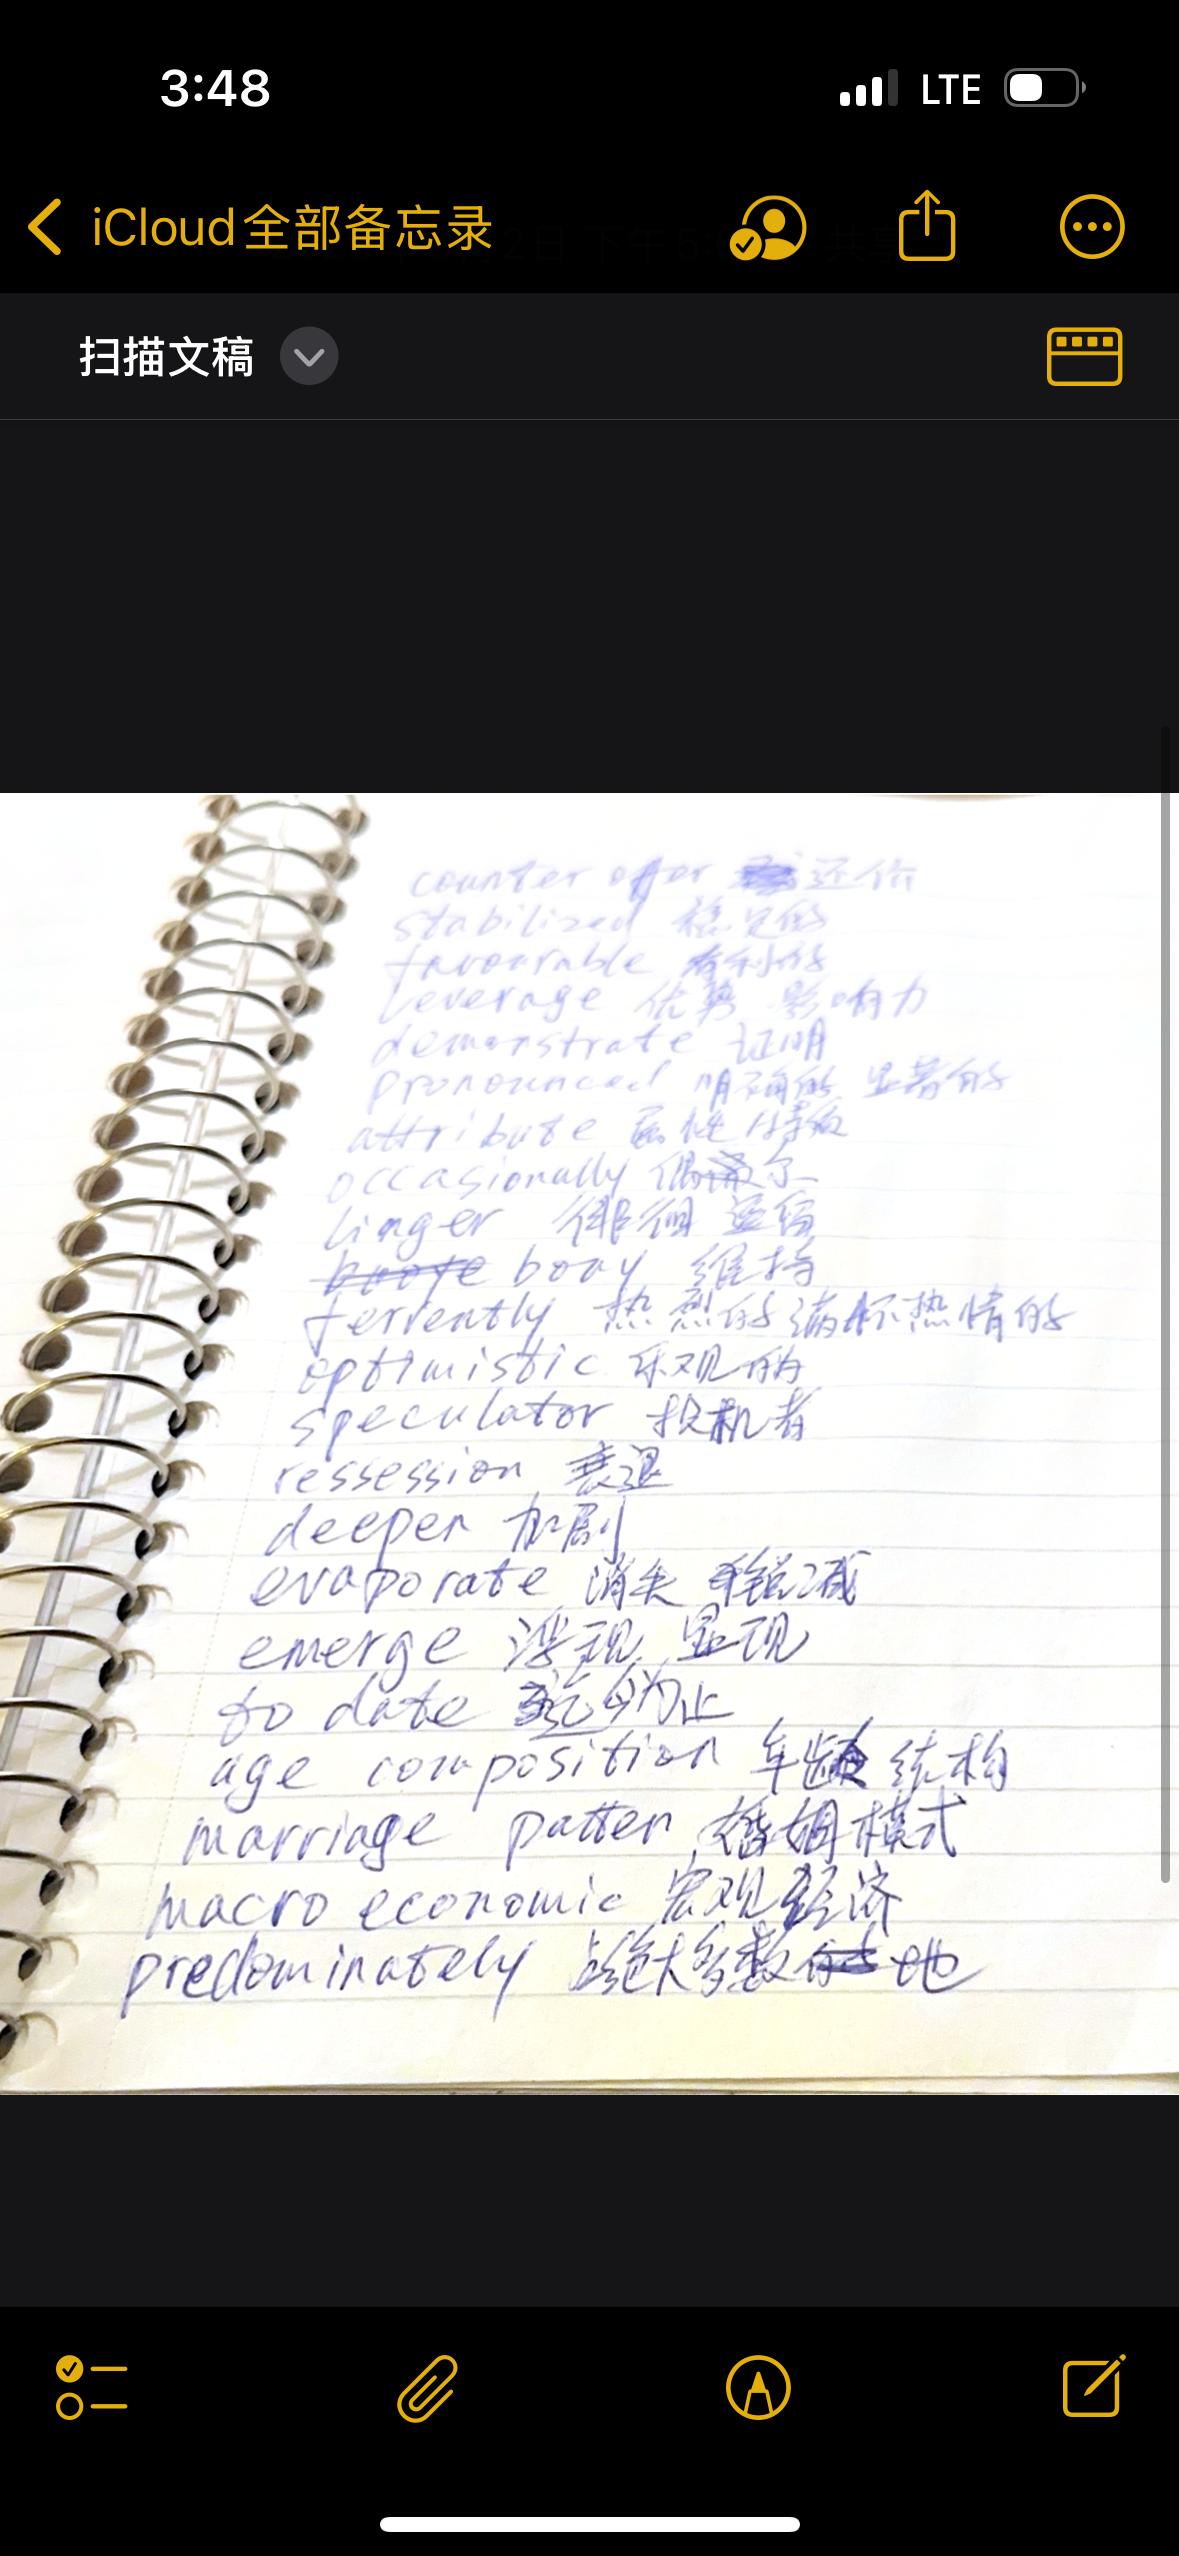 3:48 LTE
iCloud全部备忘录
扫描文稿
counter offer 还价
stabilized 稳定的
favourable 有利的
leverage 优势 影响力
demonstrate 证明
pronounced 明确的 显著的
attribute 属性 特质
occasionally 偶尔
linger 徘徊 逗留
buoye bouy 维持
ferrently 热烈的 满怀热情的
optimistic 乐观的
speculator 投机者
ressession 衰退
deepen 加剧
evaporate 消失 锐减
emerge 浮现 显现
to date 迄今为止
age composition 年龄结构
marriage patten 婚姻模式
macro economic 宏观经济
predominately 占绝大多数的地